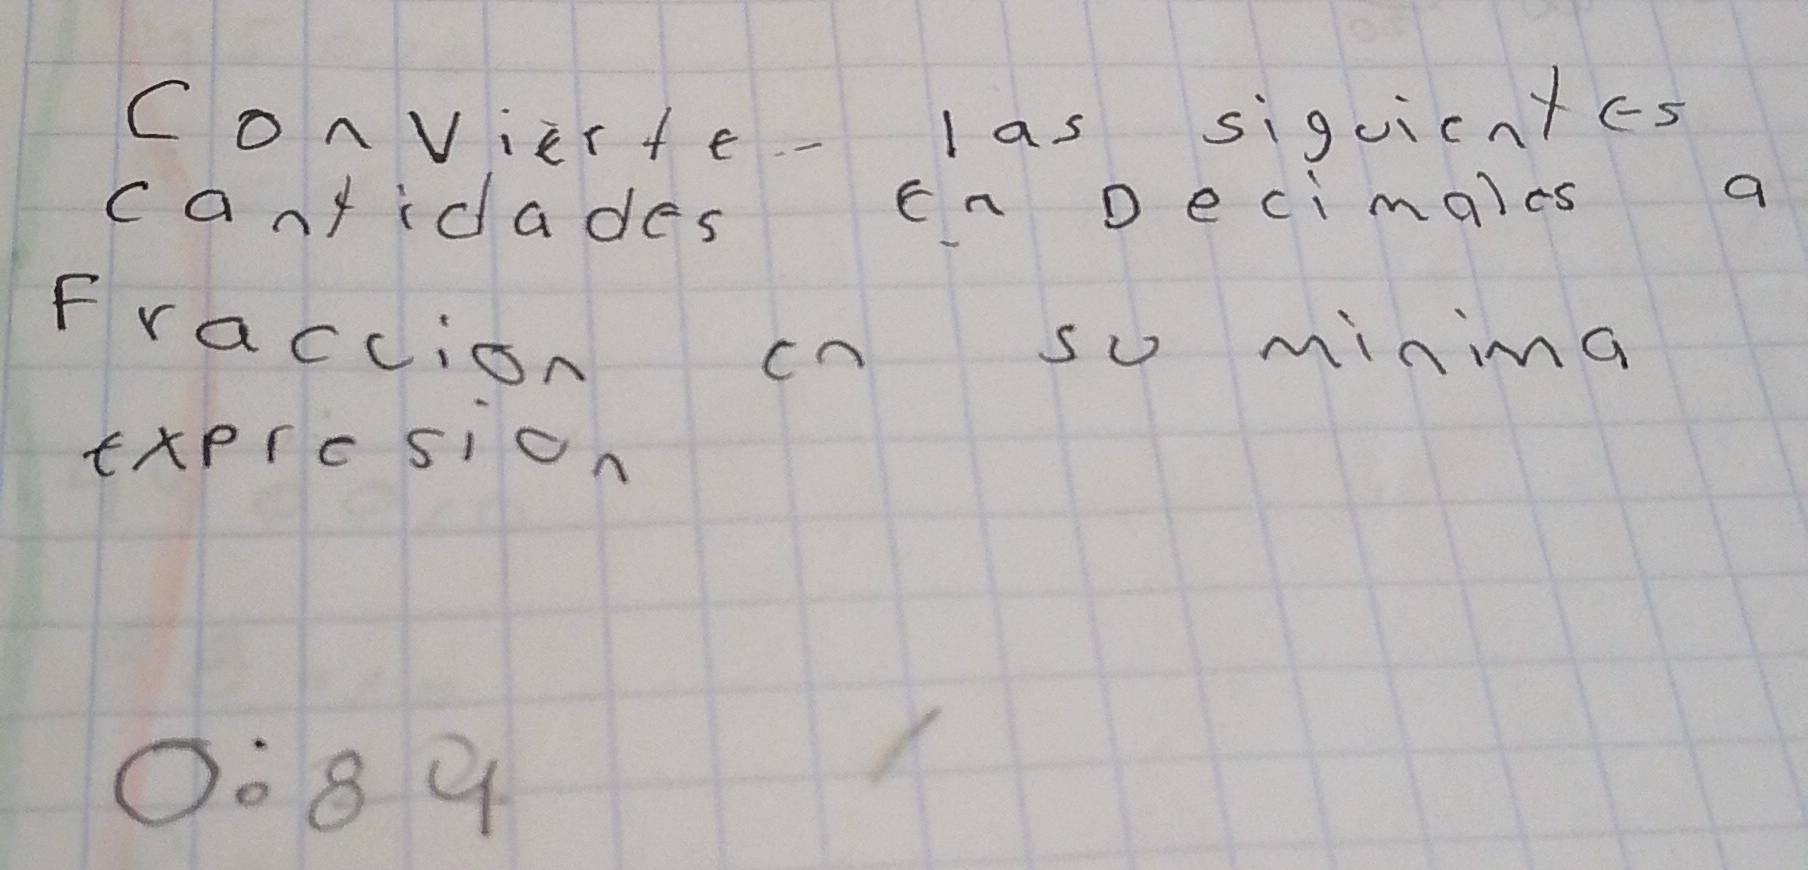 Convierte las siguientes
cantidades en Decimales a
Fraccion en su minima
expresion
0.84